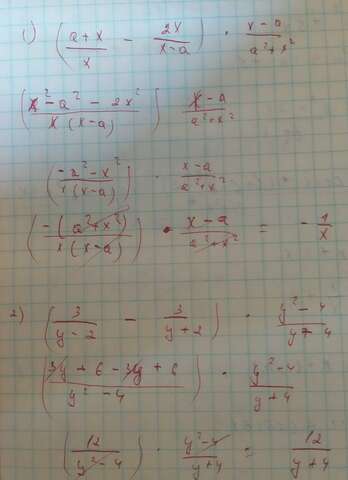 1) ( (a+x)/x − 2x/(x−a) ) · (x−a)/(a²+x²)
( (x²−a²−2x²)/(x(x−a)) ) (x−a)/(a²+x²)
( (−a²−x²)/(x(x−a)) ) · (x−a)/(a²+x²)
( (−(a²+x²))/(x(x−a)) ) · (x−a)/(a²+x²) = −1/x
2) ( 3/(y−2) − 3/(y+2) ) · (y²−4)/(y+4)
( (3y+6−3y+6)/(y²−4) ) · (y²−4)/(y+4)
( 12/(y²−4) ) · (y²−4)/(y+4) = 12/(y+4)